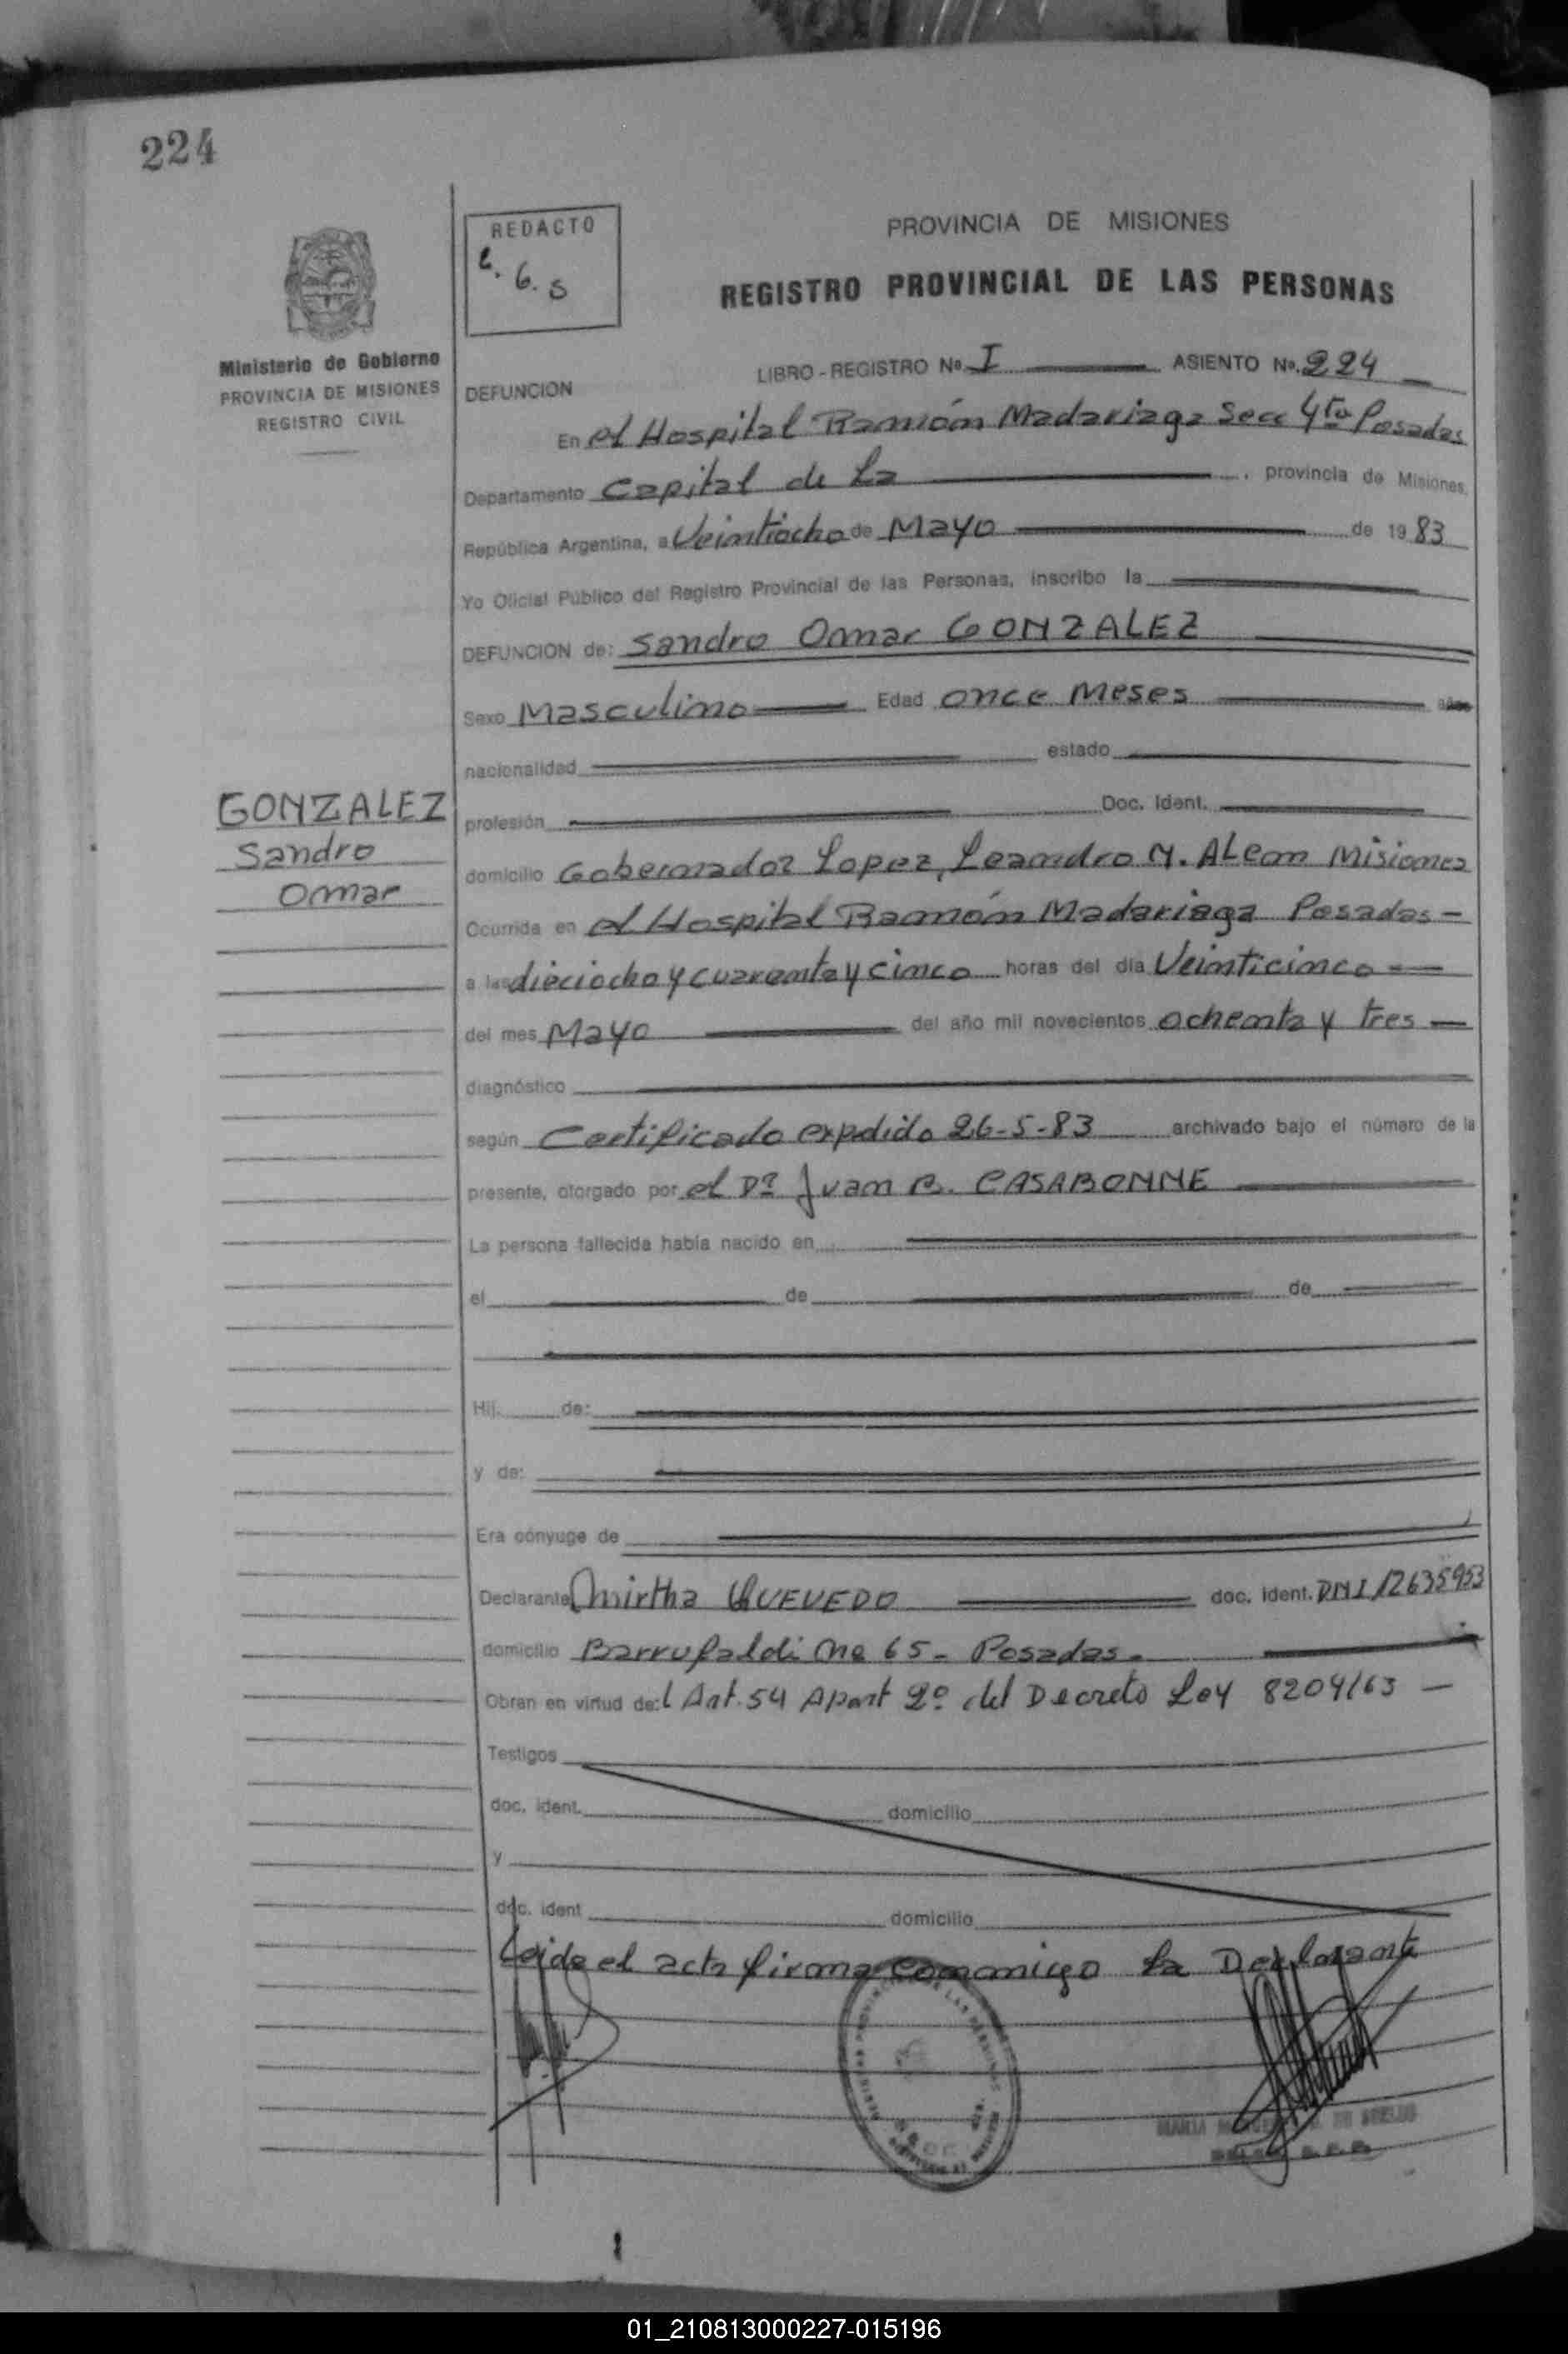 224
REDACTO
PROVINCIA DE MISIONES
REGISTRO PROVINCIAL DE LAS PERSONAS
Ministerio de Gobierno
PROVINCIA DE MISIONES
REGISTRO CIVIL
LIBRO - REGISTRO No. I ASIENTO No. 224
DEFUNCION
En el Hospital Ramón Madariaga Secc 4ta Posadas
Departamento Capital de La , provincia de Misiones,
República Argentina, a Veintiocho de Mayo de 1983
Yo Oficial Público del Registro Provincial de las Personas, inscribo la
DEFUNCION de: Sandro Omar GONZALEZ
Sexo Masculino Edad once Meses años
nacionalidad estado
GONZALEZ
Sandro
Omar
profesión Doc. Ident.
domicilio Gobernador Lopez, Leandro N. ALem Misiones
Ocurrida en el Hospital Ramón Madariaga Posadas -
a las dieciocho y cuarenta y cinco horas del día Veinticinco -
del mes Mayo del año mil novecientos ochenta y tres -
diagnóstico
según Certificado expedido 26-5-83 archivado bajo el número de la
presente, otorgado por el Dr Juan B. CASABONNE
La persona fallecida había nacido en
el de de
Hij. de:
y de:
Era cónyuge de
Declarante Mirtha QUEVEDO doc. ident. DNI 12635953
domicilio Barrufaldi No 65 - Posadas.
Obran en virtud de: l Art. 54 Apart 2º del Decreto Ley 8204/63 -
Testigos
doc. ident. domicilio
y
doc. ident domicilio
Leida el acta firma conmigo La Declarante
01_210813000227-015196